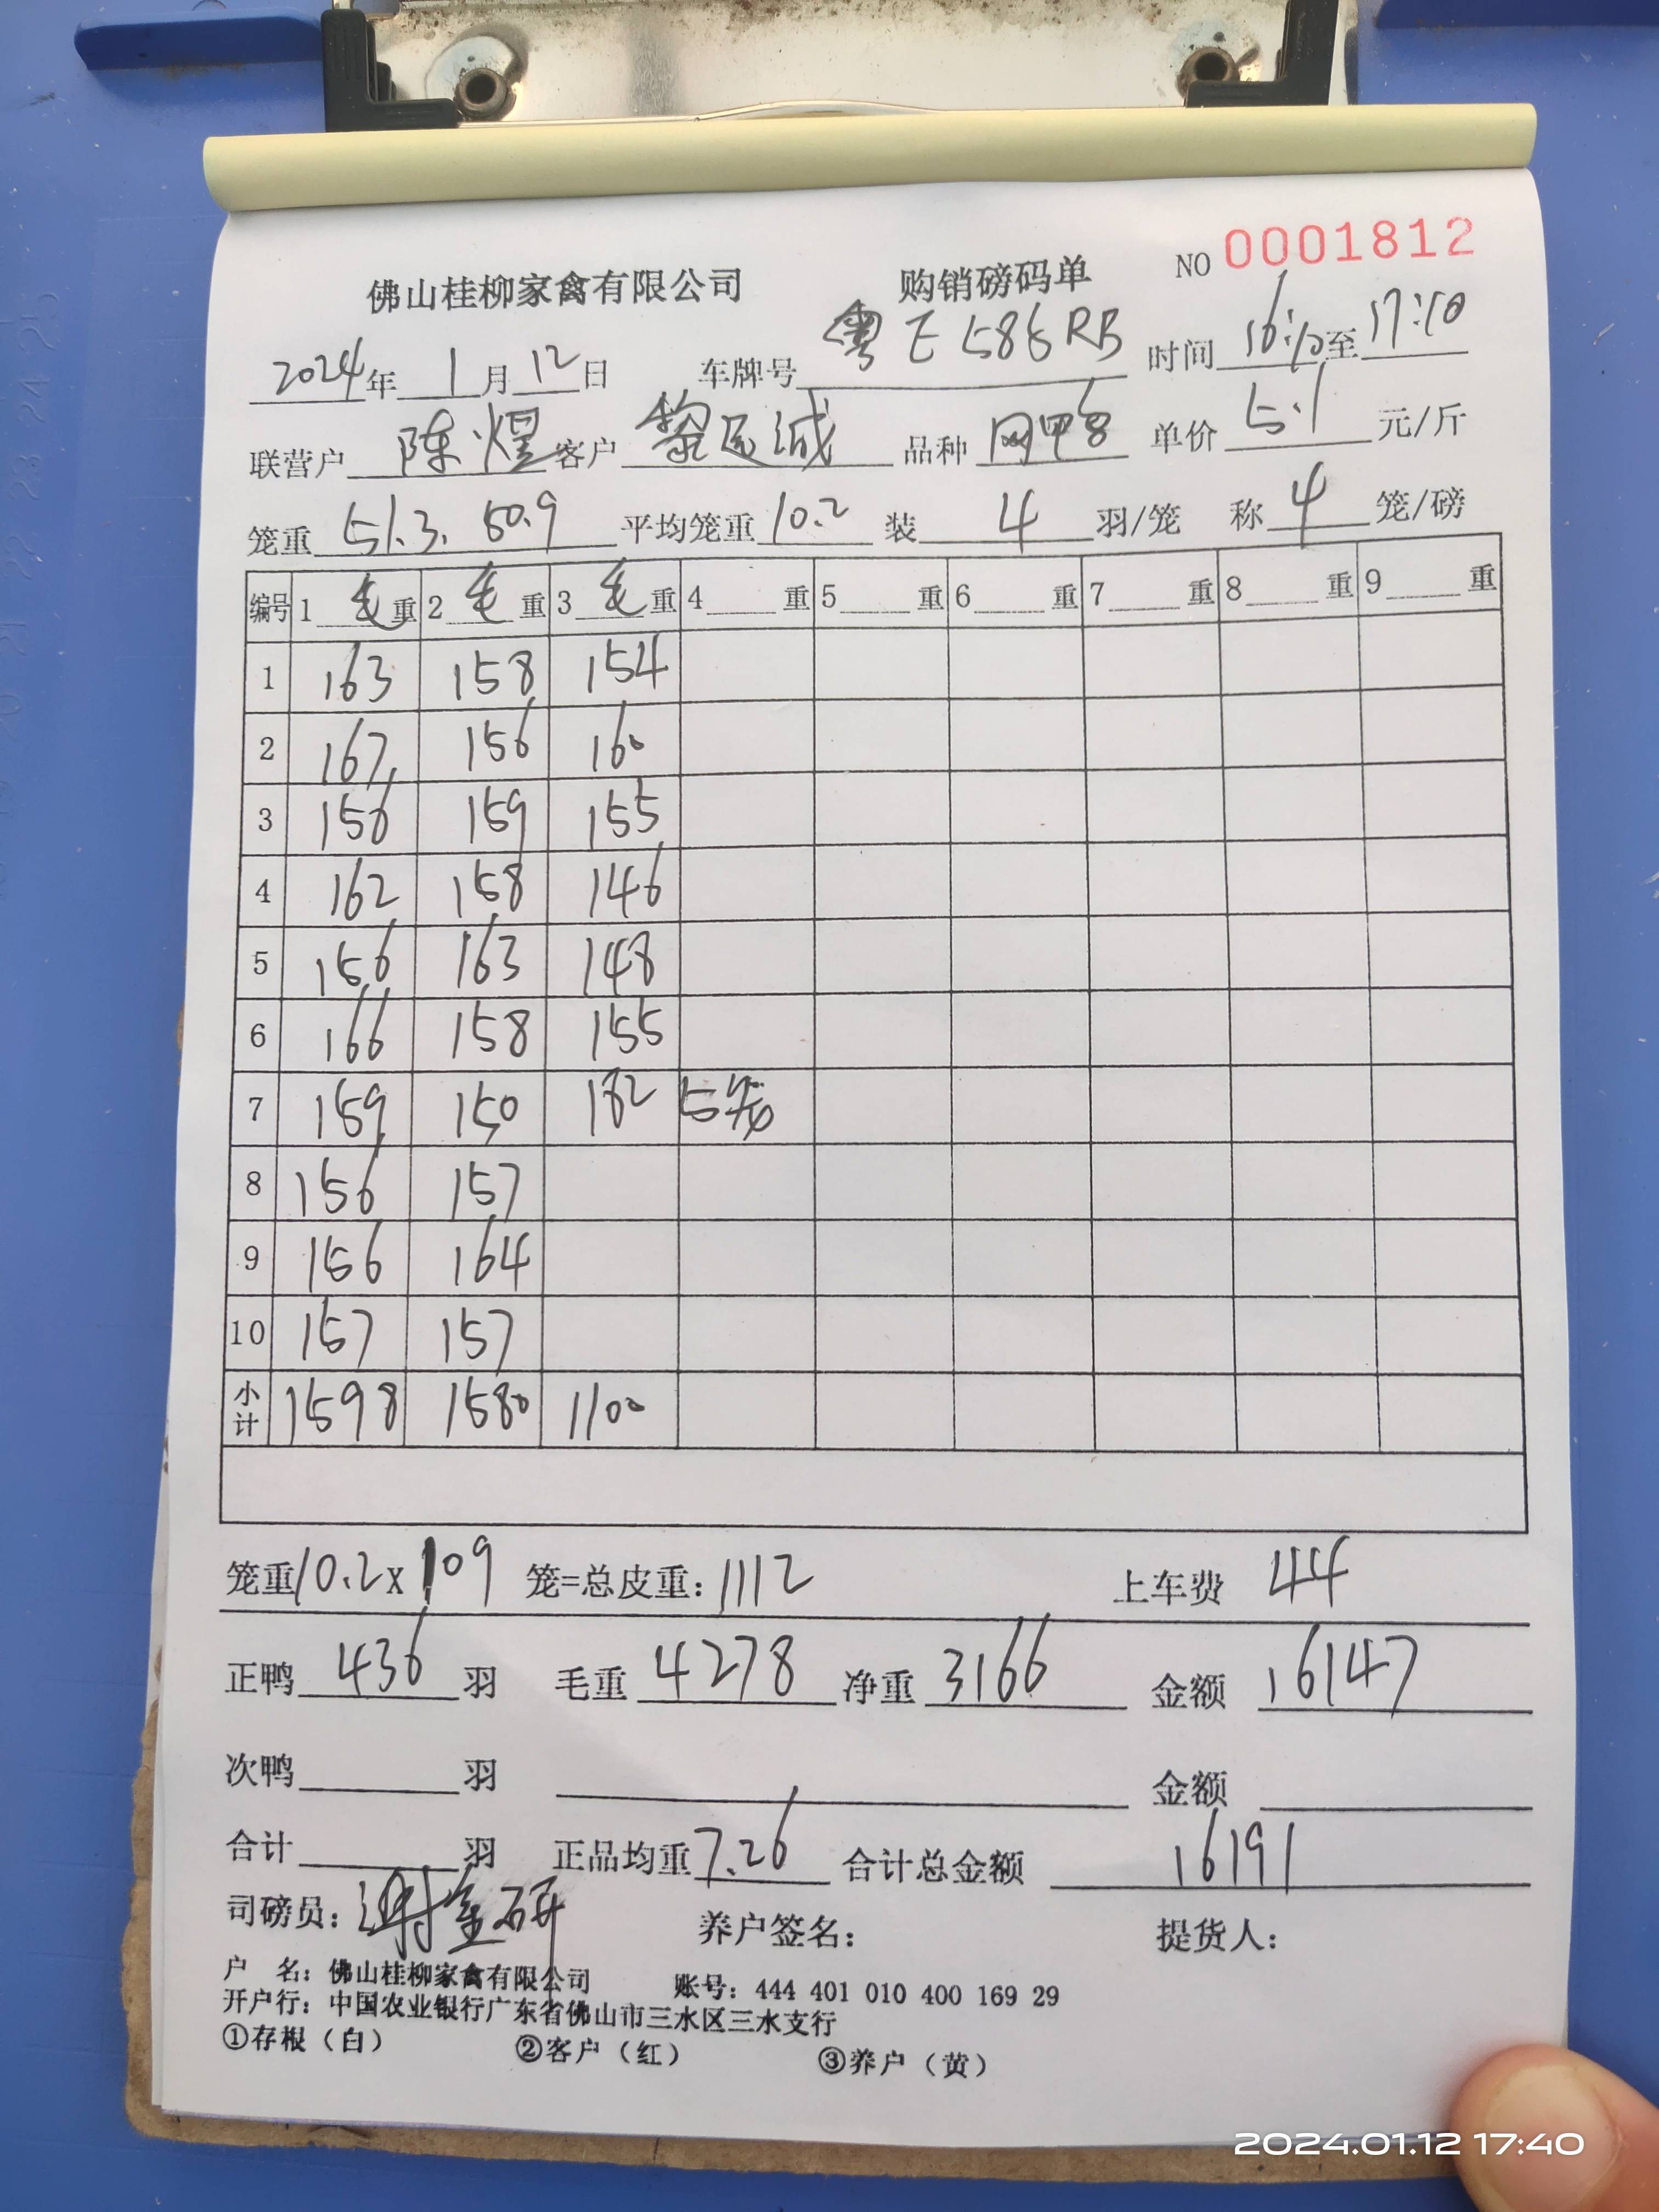 佛山桂柳家禽有限公司 购销磅码单 NO 0001812
2024年 1月12日 车牌号 粤E586RB 时间 16:10至17:10
联营户 陈煌 客户 黎 诚 品种 网甲 单价 5.1 元/斤
笼重 51.3. 50.9 平均笼重 10.2 装 4 羽/笼 称 4 笼/磅
编号 1 毛 重 2 毛 重 3 毛 重 4 重 5 重 6 重 7 重 8 重 9 重
1 163 158 154
2 167 156 160
3 156 159 155
4 162 158 146
5 156 163 148
6 166 158 155
7 159 150 182 5笼
8 156 157
9 156 164
10 157 157
小计 1598 1580 1100
笼重10.2x109 笼=总皮重: 1112 上车费 44
正鸭 436 羽 毛重 4278 净重 3166 金额 16147
次鸭 羽 金额
合计 羽 正品均重 7.26 合计总金额 16191
司磅员: 谢金研 养户签名: 提货人:
户 名: 佛山桂柳家禽有限公司 账号: 444 401 010 400 169 29
开户行: 中国农业银行广东省佛山市三水区三水支行
①存根(白) ②客户(红) ③养户(黄)
2024.01.12 17:40